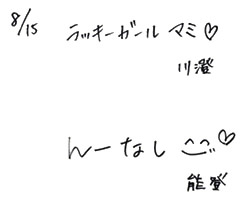 8/15 ラッキーガール マミ♡
川澄
んーなし ^^♡
能登